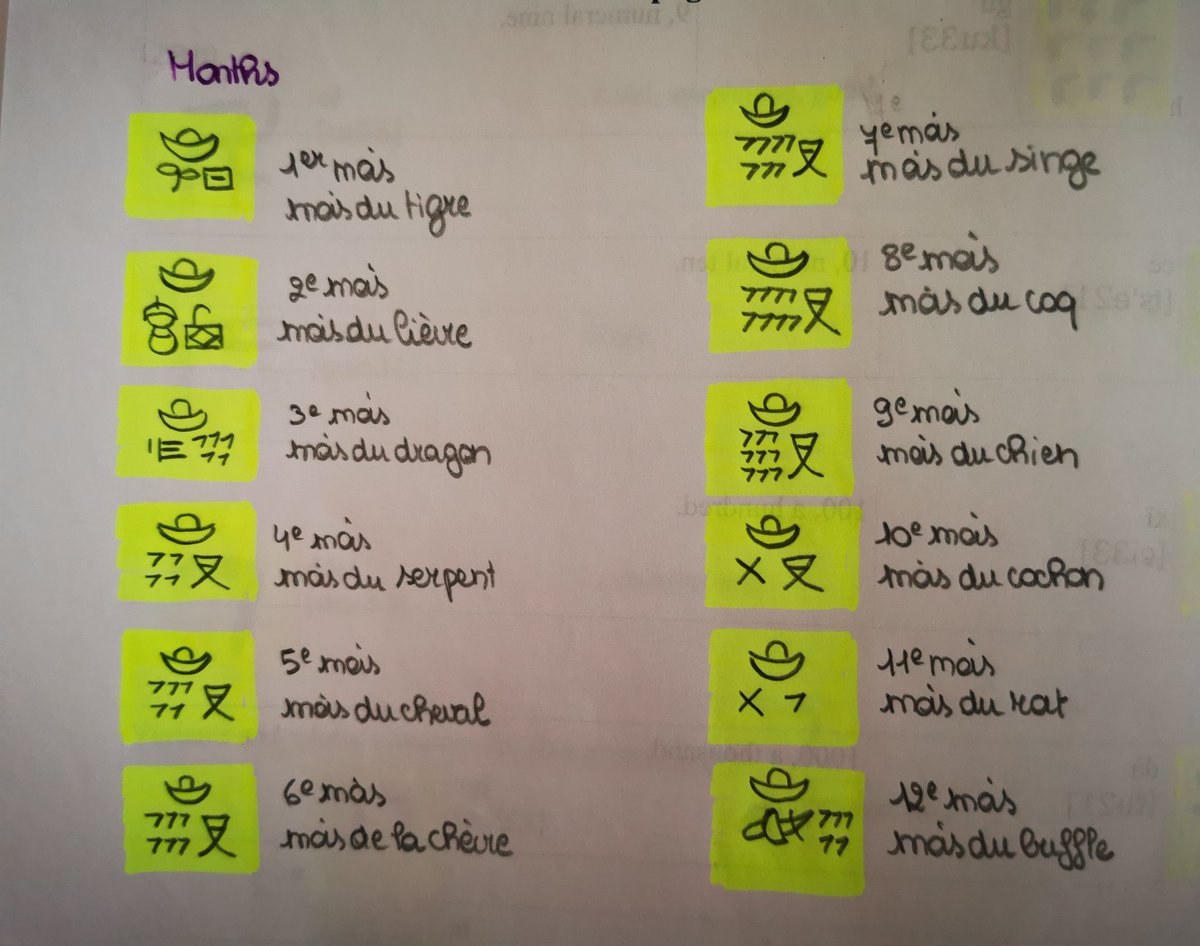 Months
1er mois
mois du tigre
2e mois
mois du lièvre
3e mois
mois du dragon
4e mois
mois du serpent
5e mois
mois du cheval
6e mois
mois de la chèvre
7e mois
mois du singe
8e mois
mois du coq
9e mois
mois du chien
10e mois
mois du cochon
11e mois
mois du rat
12e mois
mois du buffle